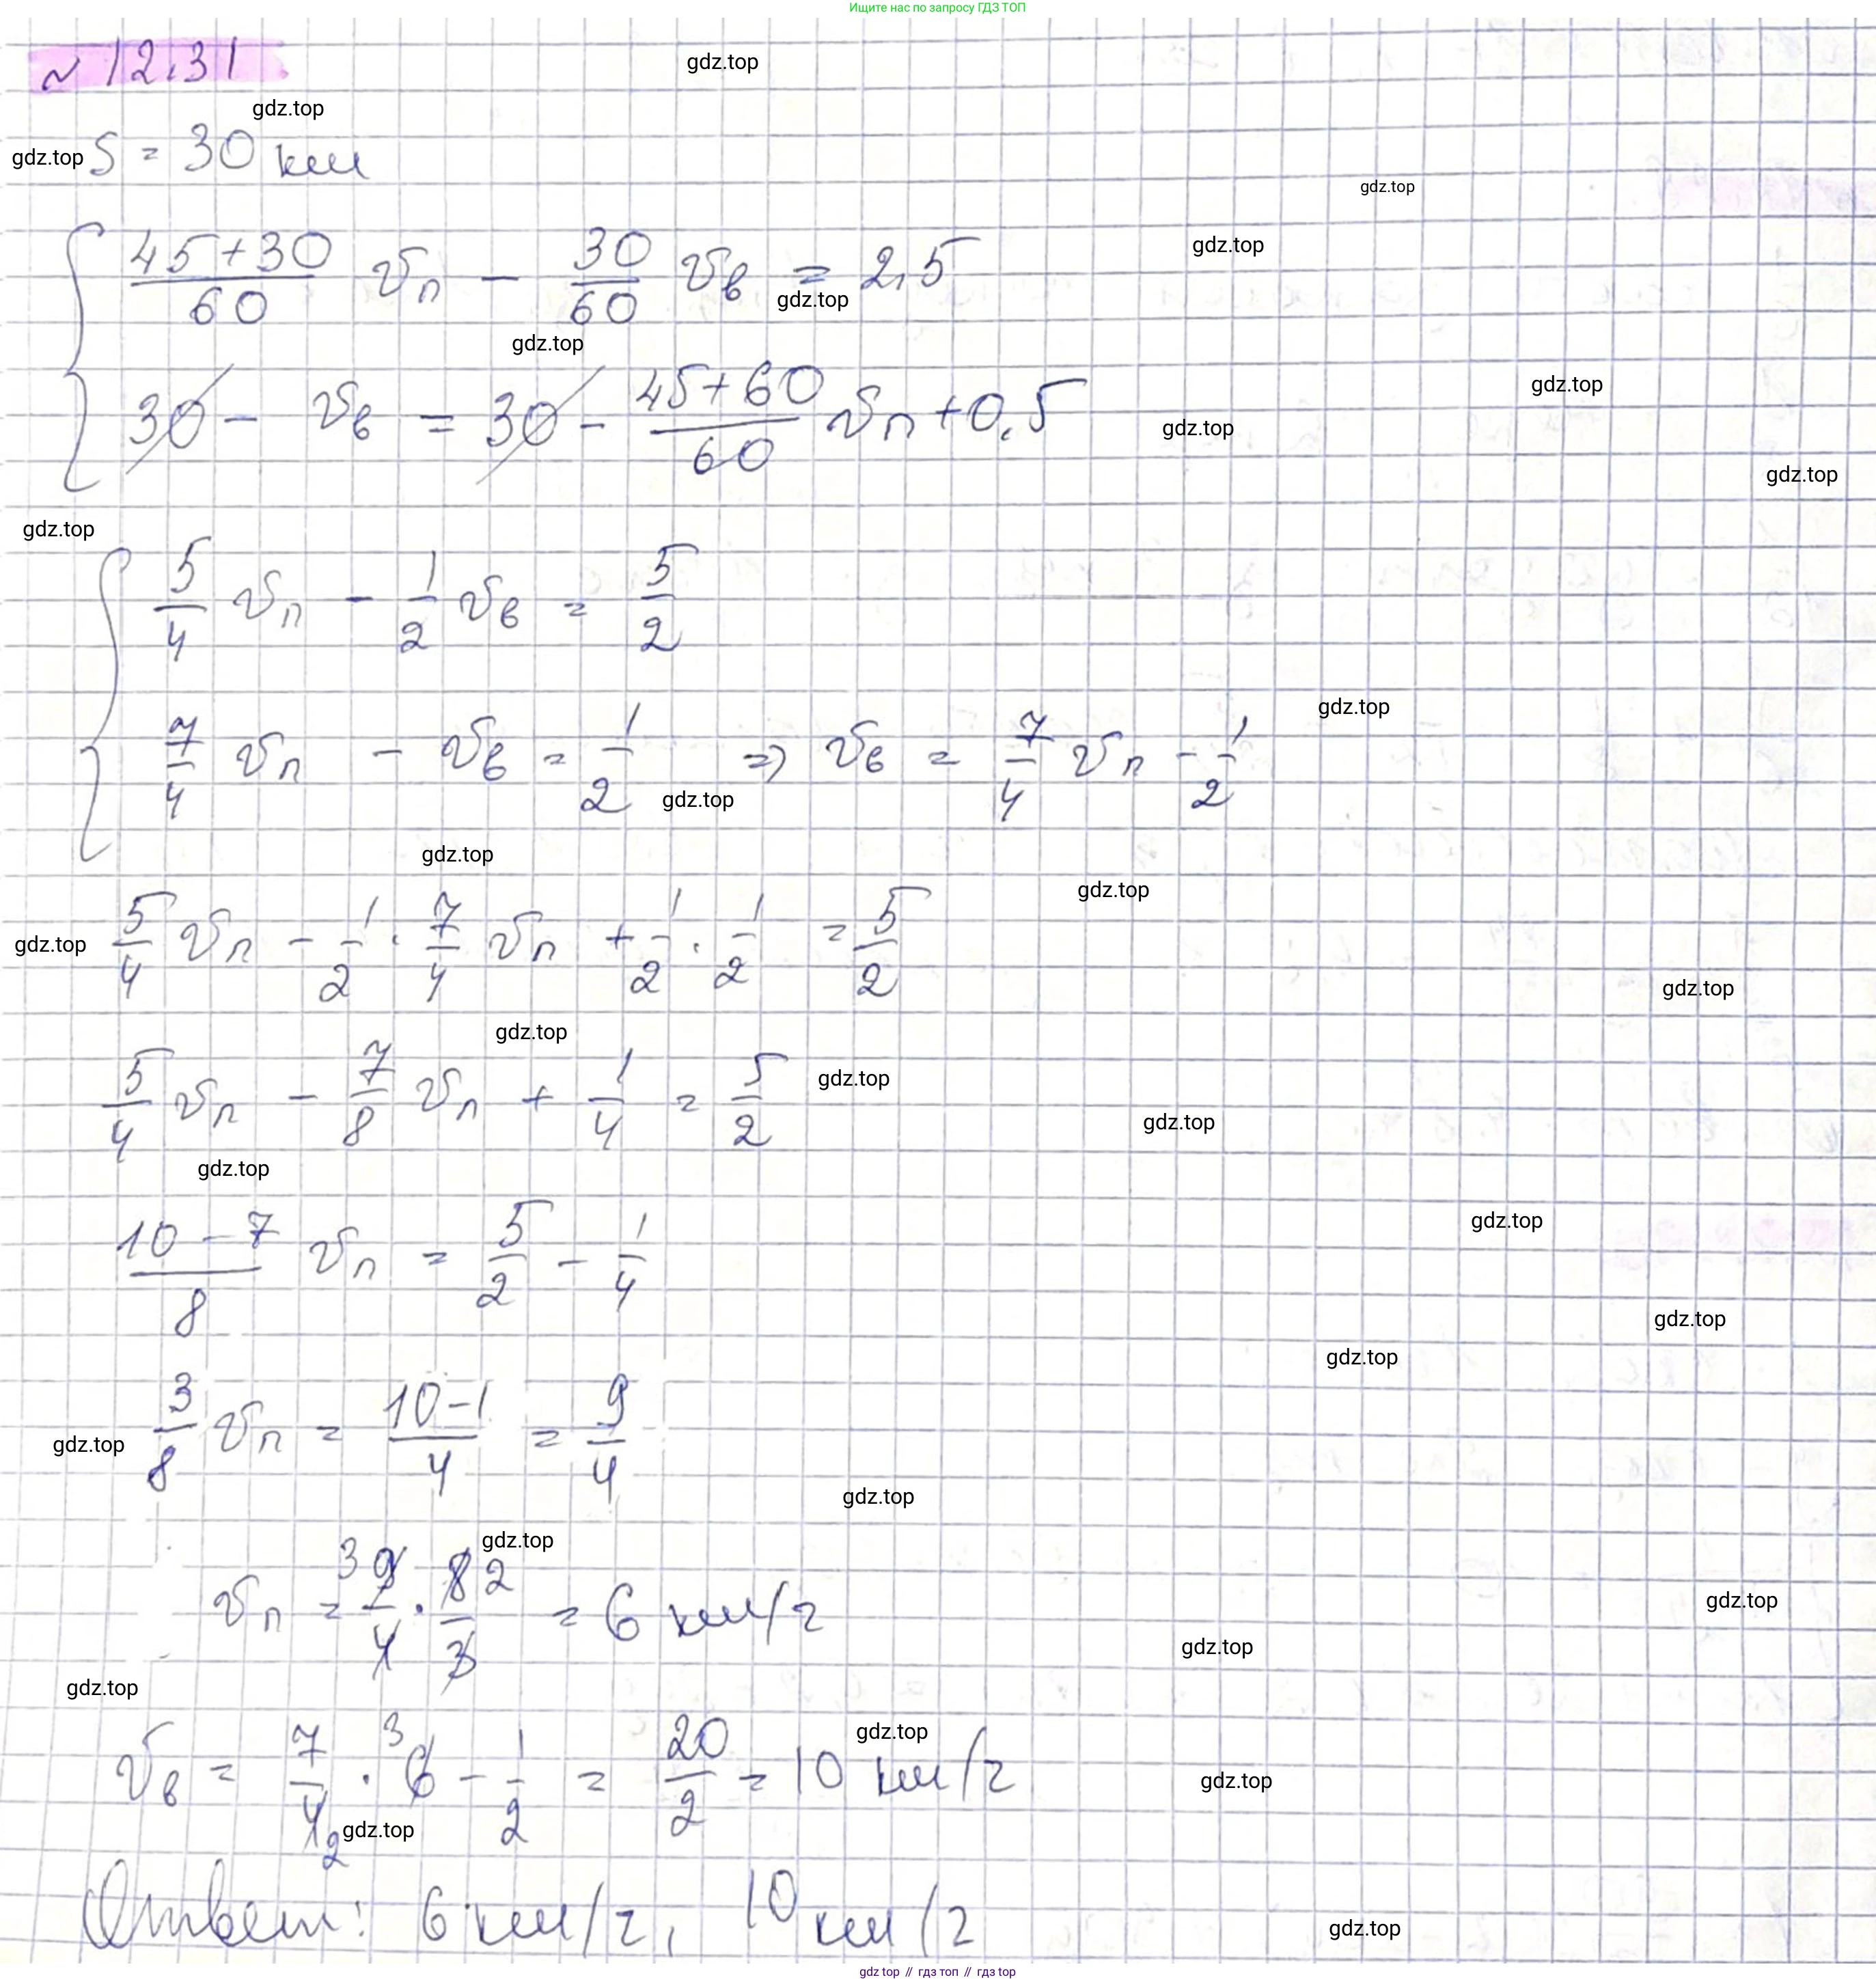 Ищите нас по запросу ГДЗ ТОП
№ 12.31
gdz.top
gdz.top
gdz.top S = 30 км
gdz.top
{ (45+30)/60 vп − 30/60 vв = 2,5
gdz.top
gdz.top
gdz.top
gdz.top
30 − vв = 30 − (45+60)/60 vп + 0,5
gdz.top
gdz.top
gdz.top
{ 5/4 vп − 1/2 vв = 5/2
gdz.top
7/4 vп − vв = 1/2 => vв = 7/4 vп − 1/2
gdz.top
gdz.top
gdz.top
gdz.top 5/4 vп − 1/2 · 7/4 vп + 1/2 · 1/2 = 5/2
gdz.top
gdz.top
gdz.top
5/4 vп − 7/8 vп + 1/4 = 5/2
gdz.top
gdz.top
gdz.top
(10 − 7)/8 vп = 5/2 − 1/4
gdz.top
gdz.top
gdz.top 3/8 vп = (10−1)/4 = 9/4
gdz.top
gdz.top
vп = 3 9/4 · 8/3 2 = 6 км/г
gdz.top
gdz.top
gdz.top
vв = 7/4 2 · 3 6 − 1/2 = 20/2 = 10 км/г
gdz.top
gdz.top
Ответ: 6 км/г, 10 км/г
gdz.top
gdz top // гдз топ // гдз top